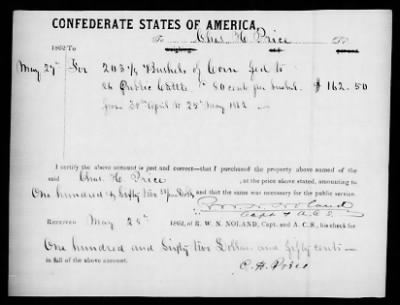 CONFEDERATE STATES OF AMERICA,
To Chas. H. Price Dr.
1862 To
May 27th For 203 1/8 Bushels of Corn fed to
26 Public Cattle 80 cents per bushel $162.50
from 30th April to 25th May 1862
I certify the above account is just and correct—that I purchased the property above named of the
said Chas. H. Price, at the price above stated, amounting to
One hundred & Sixty two 50/100 Dolls, and that the same was necessary for the public service.
R. W. N. Noland
Capt & A.C.S.
RECEIVED May 28th 1862, of R. W. N. NOLAND, Capt. and A. C. S., his check for
One hundred and Sixty two Dollars and fifty cents—
in full of the above account.
C. H. Price